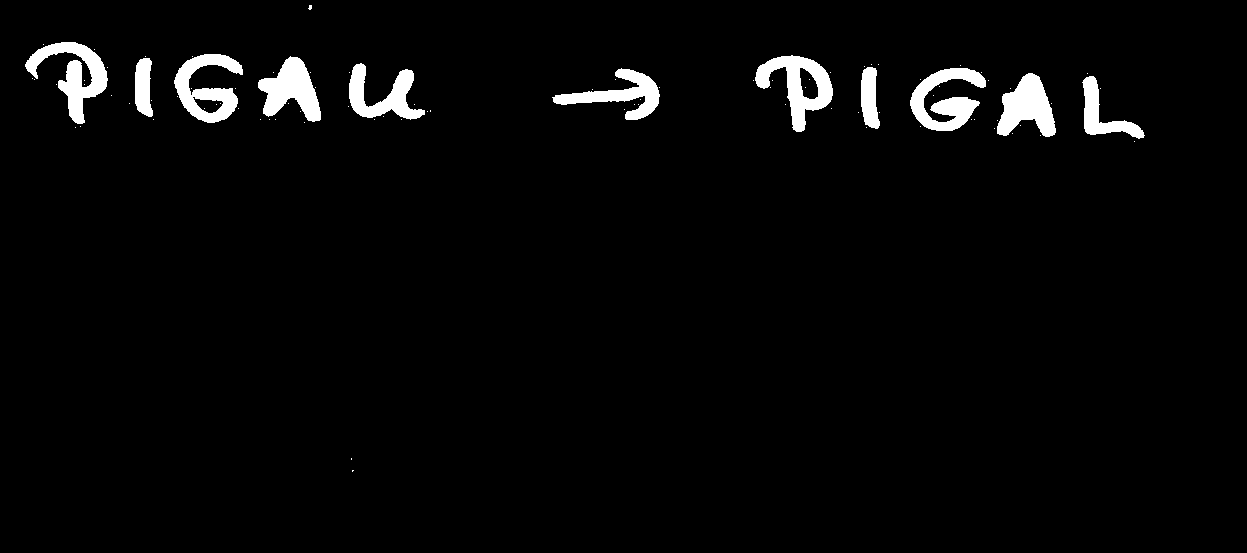 PIGAU → PIGAL